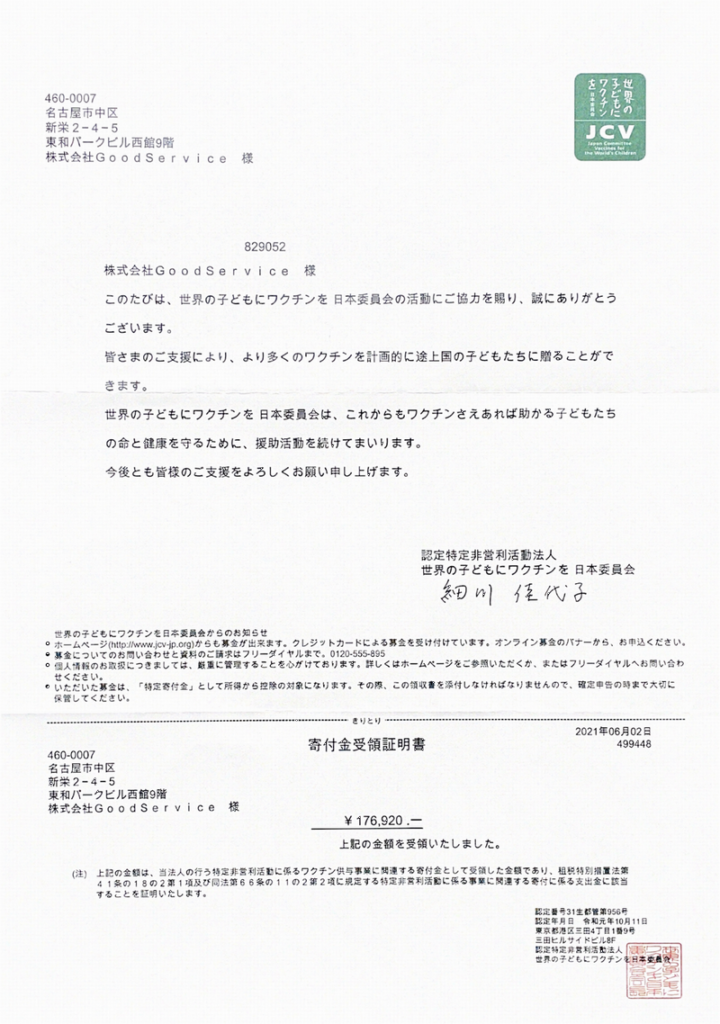 460-0007
名古屋市中区
新栄2-4-5
東和パークビル西館9階
株式会社GoodService 様
世界の
子どもに
ワクチン
を 日本委員会
JCV
Japan Committee
Vaccines for
the World's Children
829052
株式会社GoodService 様
このたびは、世界の子どもにワクチンを 日本委員会の活動にご協力を賜り、誠にありがとう
ございます。
皆さまのご支援により、より多くのワクチンを計画的に途上国の子どもたちに贈ることがで
きます。
世界の子どもにワクチンを 日本委員会は、これからもワクチンさえあれば助かる子どもたち
の命と健康を守るために、援助活動を続けてまいります。
今後とも皆様のご支援をよろしくお願い申し上げます。
認定特定非営利活動法人
世界の子どもにワクチンを 日本委員会
細川 佳代子
世界の子どもにワクチンを日本委員会からのお知らせ
ホームページ(http://www.jcv-jp.org)からも募金が出来ます。クレジットカードによる募金を受け付けています。オンライン募金のバナーから、お申込ください。
募金についてのお問い合わせと資料のご請求はフリーダイヤルまで。0120-555-895
個人情報のお取扱につきましては、厳重に管理することを心がけております。詳しくはホームページをご参照いただくか、またはフリーダイヤルへお問い合わ
せください。
いただいた募金は、「特定寄付金」として所得から控除の対象になります。その際、この領収書を添付しなければなりませんので、確定申告の時まで大切に
保管してください。
きりとり
寄付金受領証明書
2021年06月02日
499448
460-0007
名古屋市中区
新栄2-4-5
東和パークビル西館9階
株式会社GoodService 様
￥176,920.―
上記の金額を受領いたしました。
(注) 上記の金額は、当法人の行う特定非営利活動に係るワクチン供与事業に関連する寄付金として受領した金額であり、租税特別措置法第
41条の18の2第1項及び同法第66条の11の2第2項に規定する特定非営利活動に係る事業に関連する寄付に係る支出金に該当
することを証明いたします。
認定番号31生都管第956号
認定年月日 令和元年10月11日
東京都港区三田4丁目1番9号
三田ヒルサイドビル8F
認定特定非営利活動法人
世界の子どもにワクチンを日本委員会